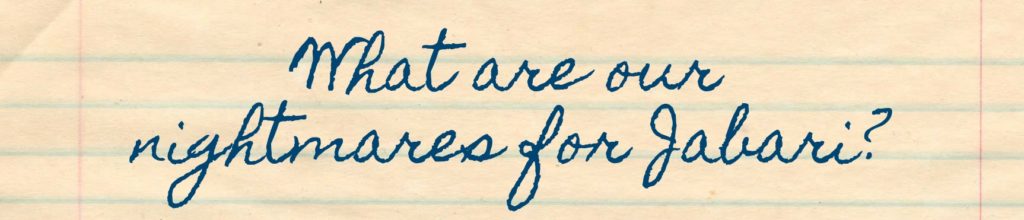 What are our
nightmares for Jabari?